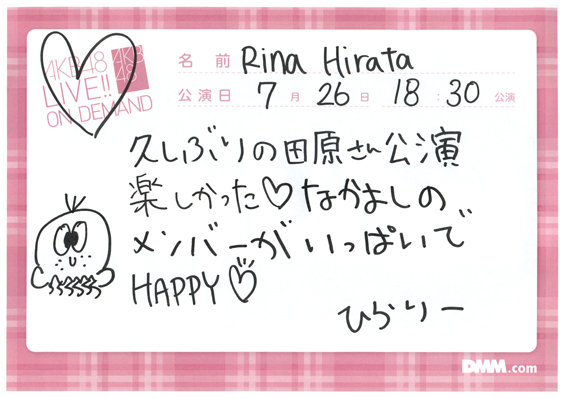 AKB48
LIVE!!
ON DEMAND
AKB
48
名前 Rina Hirata
公演日 7月26日 18:30公演
久しぶりの田原さん公演
楽しかった♡なかよしの
メンバーがいっぱいで
HAPPY♡
ひらりー
DMM.com